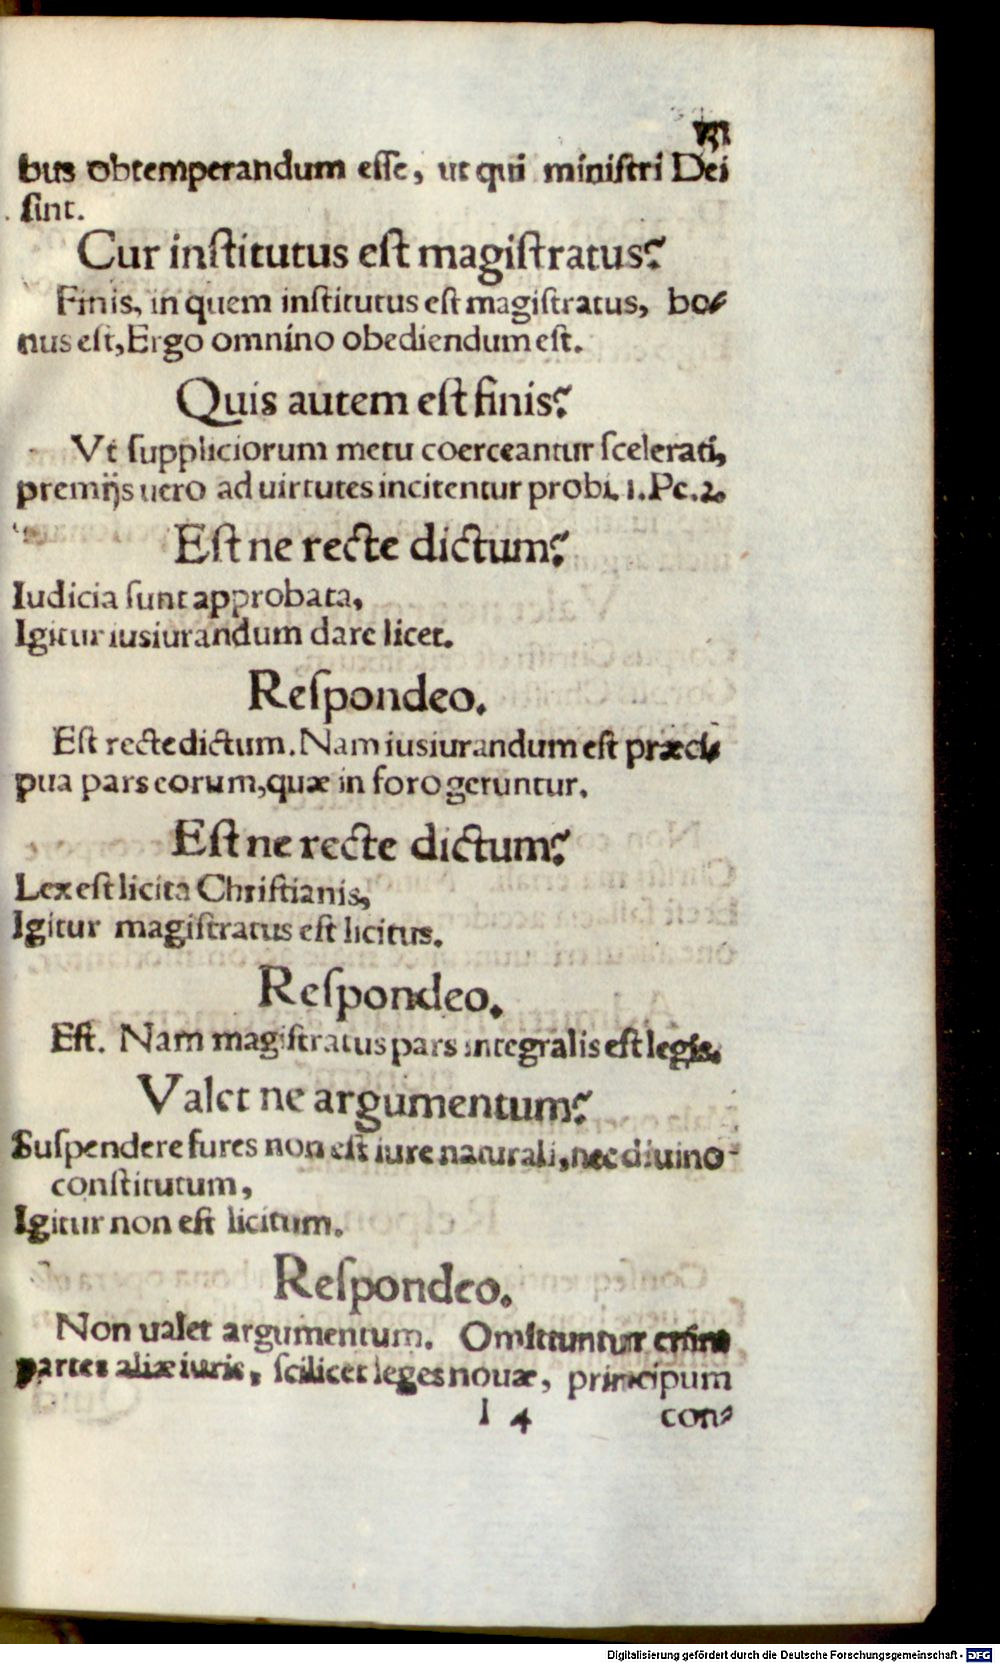 bus obtemperandum esse, ut qui ministri Dei
sint.
Cur institutus est magistratus?
Finis, in quem institutus est magistratus, bo-
nus est, Ergo omnino obediendum est.
Quis autem est finis?
Vt suppliciorum metu coerceantur scelerati,
premijs uero ad uirtutes incitentur probi. 1. Pe. 2.
Est ne recte dictum?
Iudicia sunt approbata,
Igitur iusiurandum dare licet.
Respondeo.
Est recte dictum. Nam iusiurandum est præci-
pua pars eorum, quæ in foro geruntur.
Est ne recte dictum?
Lex est licita Christianis,
Igitur magistratus est licitus.
Respondeo.
Est. Nam magistratus pars integralis est legis.
Valet ne argumentum?
Suspendere fures non est iure naturali, nec diuino
constitutum,
Igitur non est licitum.
Respondeo.
Non ualet argumentum. Omittuntur enim
partes aliæ iuris, scilicet leges nouæ, principum
I 4 con-
Digitalisierung gefördert durch die Deutsche Forschungsgemeinschaft - DFG